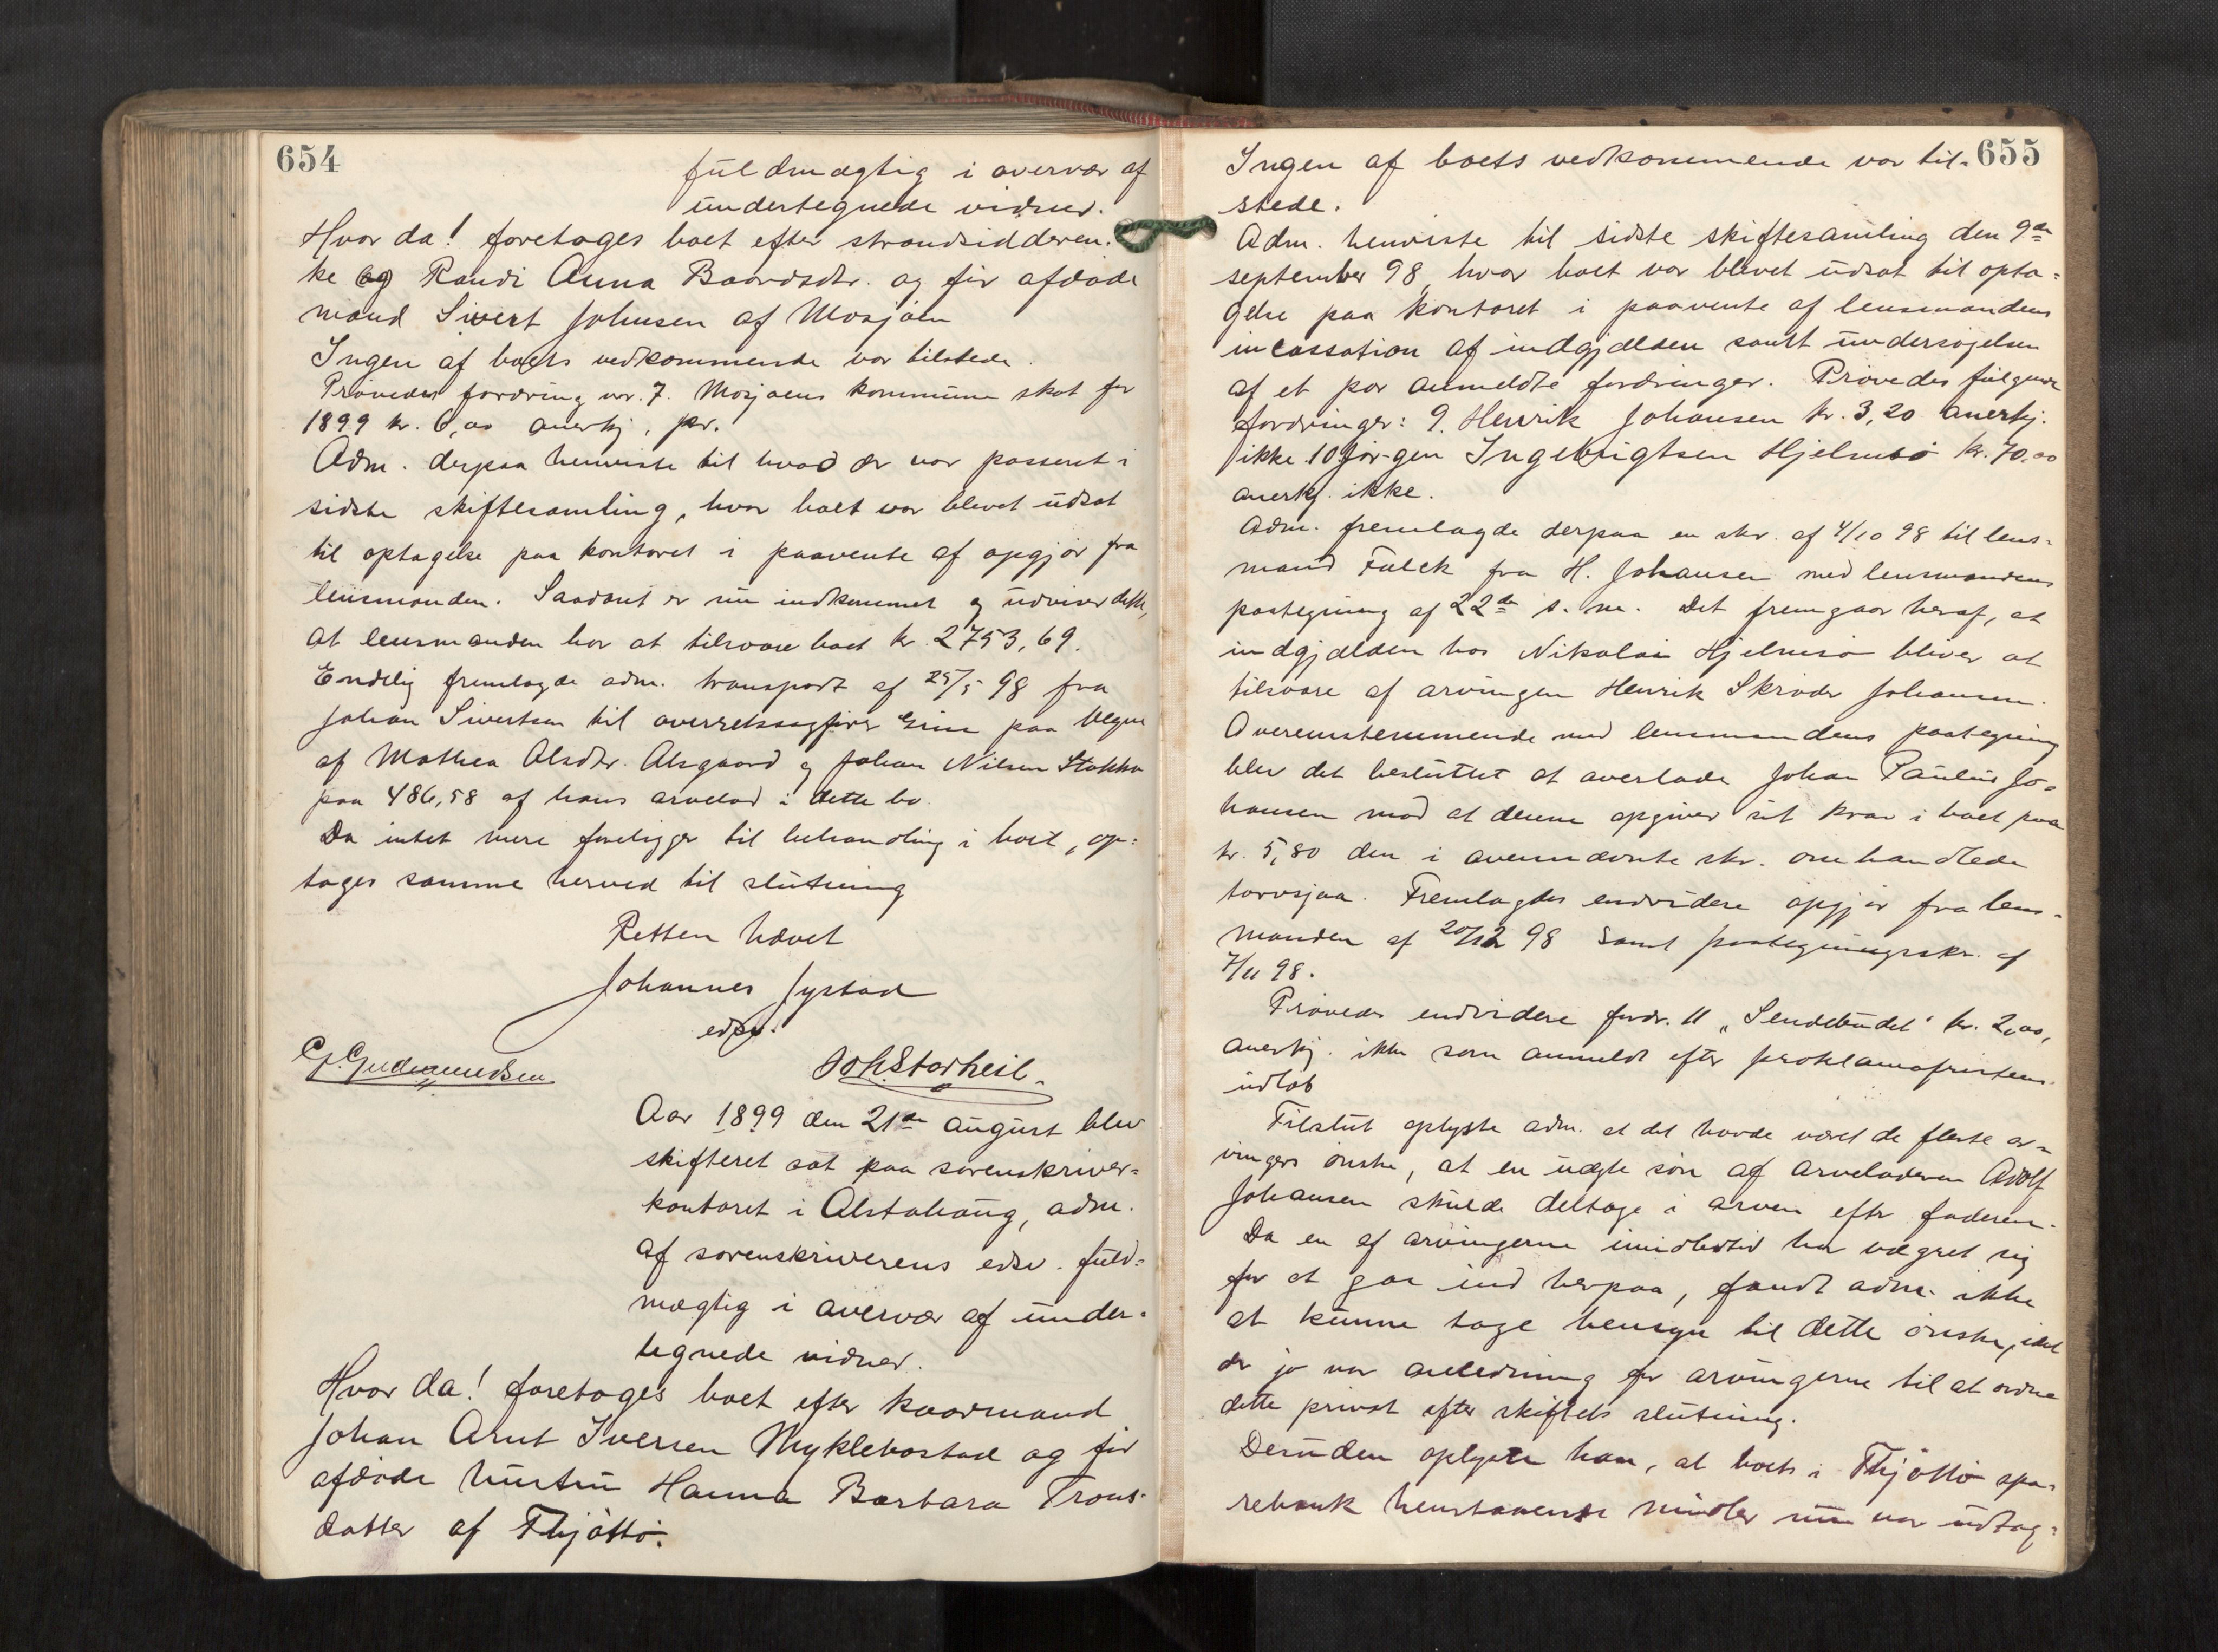 654
fuldmægtig i overvær af
undertegnede vidner.
Hvor da! foretoges boet efter strandsidderen-
ke og Randi Anna Baardsdtr. og før afdøde
mand Sivert Johnsen af Mosjøen
Ingen af boets vedkommende var tilstede.
Prøvedes fordring nr. 7. Mosjøens kommune skat for
1899 kr. 6,00 anerkj. pr.
Adm. derpaa henviste til hvad der var passeret i
sidste skiftesamling, hvor boet var blevet udsat
til optagelse paa kontoret i paavente af opgjør fra
lensmanden. Saadant er nu indkommet og udviser dette,
at lensmanden har at tilsvare boet kr. 2753,69.
Endelig fremlagde adm. transport af 25/5 98 fra
Johan Sivertsen til overretssagfører paa vegne
af Mathea Olsdtr. Alsgaard og Johan Nilsen Stokka
paa 486,58 af hans arvelod i dette bo.
Da intet mere foreligger til behandling i boet, op-
tages samme herved til slutning
Retten hævet
Johannes Jystad
edsv.
G. Gudmundsen
Joh Storheil
Aar 1899 den 21de august blev
skifteret sat paa sorenskriver-
kontoret i Alstahaug, adm.
af sorenskriverens edsv. fuld-
mægtig i overvær af under-
tegnede vidner.
Hvor da! foretoges boet efter kaarmand
Johan Arnt Iversen Myklebostad og før
afdøde hustru Hanna Barbara Trons-
datter af Thjøttø.
655
Ingen af boets vedkommende var til-
stede.
Adm. henviste til sidste skiftesamling den 9de
september 98, hvor boet var blevet udsat til opta-
gelse paa kontoret i paavente af lensmandens
incassation af indgjælden samt undersøgelsen
af et par anmeldte fordringer. Prøvedes følgende
fordringer: 9. Henrik Johansen kr. 3,20 anerkj.
ikke. 10 Jør-gen Ingebrigtsen Hjelmsø kr. 70,00
anerkj. ikke.
Adm. fremlagde derpaa en skr. af 4/10 98 til lens-
mand Falck fra H. Johansen med lensmandens
paategning af 22de s. m. Det fremgaar heraf, at
indgjælden hos Nikolai Hjelmsø bliver at
tilsvare af arvingen Henrik Skrøder Johansen.
Overensstemmende med lensmandens paategning
blev det besluttet at overlade Johan Paulus Jo-
hansen mod at denne opgiver sit krav i boet paa
kr. 5,80 den i ovennævnte skr. omhandlede
torvsjaa. Fremlagdes endvidere opgjør fra lens-
manden af 20/12 98 samt paategningsskr. af
7/11 98.
Prøvedes endvidere fordr. 11 „Sendebudet" kr. 2,00,
anerkj. ikke som anmeldt efter proklamafristens
udløb
Tilslut oplyste adm. at det havde været de fleste ar-
vingers ønske, at en uægte søn af arveladeren Adolf
Johansen skulde deltage i arven efter faderen.
Da en af arvingerne imidlertid har vægret sig
for at gaa ind herpaa, fandt adm. ikke
at kunne tage hensyn til dette ønske, idet
der jo var anledning for arvingerne til at ordne
dette privat efter skiftets slutning.
Desuden oplyste han, at boets i Thjøttø spa-
rebank henstaaende midler nu var udtag-